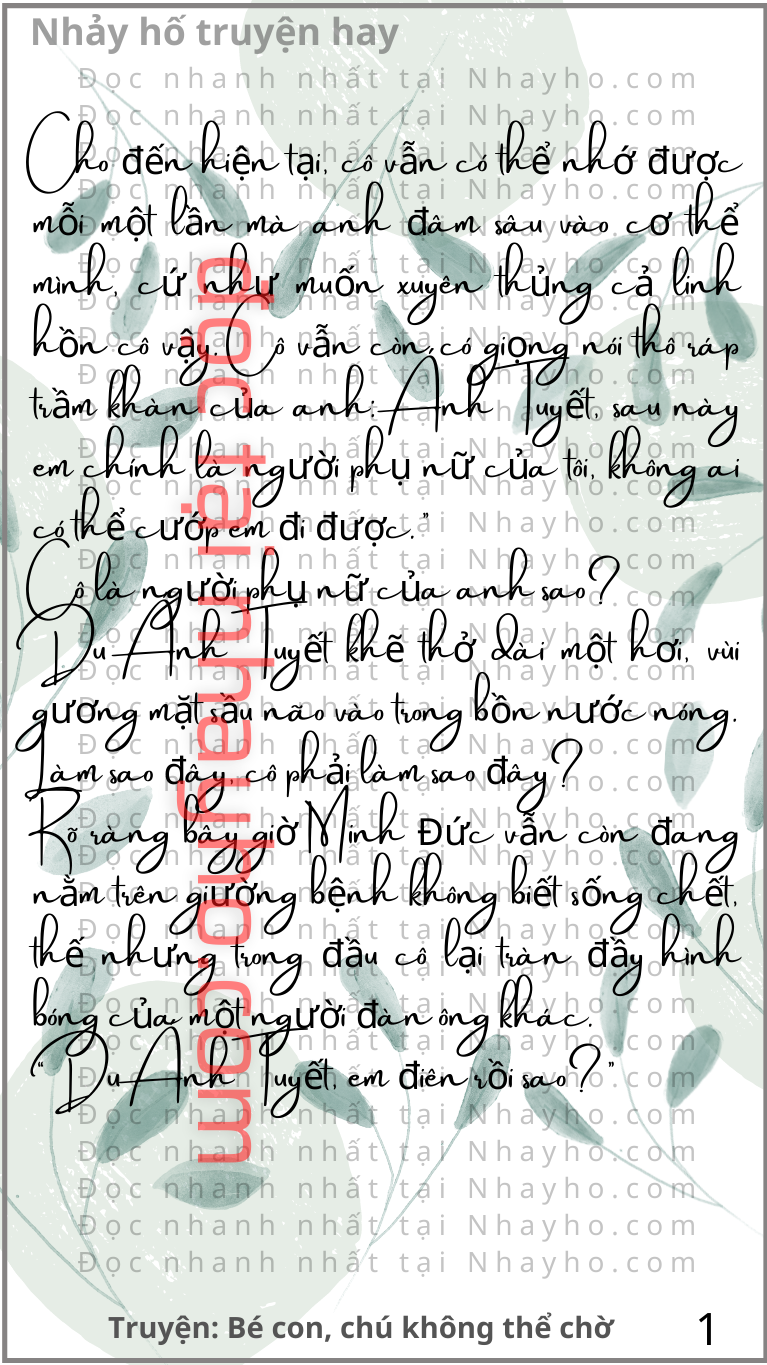 Nhảy hố truyện hay
Đọc nhanh nhất tại Nhayho.com
Cho đến hiện tại, cô vẫn có thể nhớ được
mỗi một lần mà anh đâm sâu vào cơ thể
mình, cứ như muốn xuyên thủng cả linh
hồn cô vậy. Cô vẫn còn có giọng nói thô ráp
trầm khàn của anh: Anh Tuyết, sau này
em chính là người phụ nữ của tôi, không ai
có thể cướp em đi được."
Cô là người phụ nữ của anh sao?
Du Anh Tuyết khẽ thở dài một hơi, vùi
gương mặt sầu não vào trong bồn nước nóng.
Làm sao đây, cô phải làm sao đây?
Rõ ràng bây giờ Minh Đức vẫn còn đang
nằm trên giường bệnh không biết sống chết,
thế nhưng trong đầu cô lại tràn đầy hình
bóng của một người đàn ông khác.
"Du Anh Tuyết, em điên rồi sao?"
đọc tại nhayho.com
Truyện: Bé con, chú không thể chờ
1